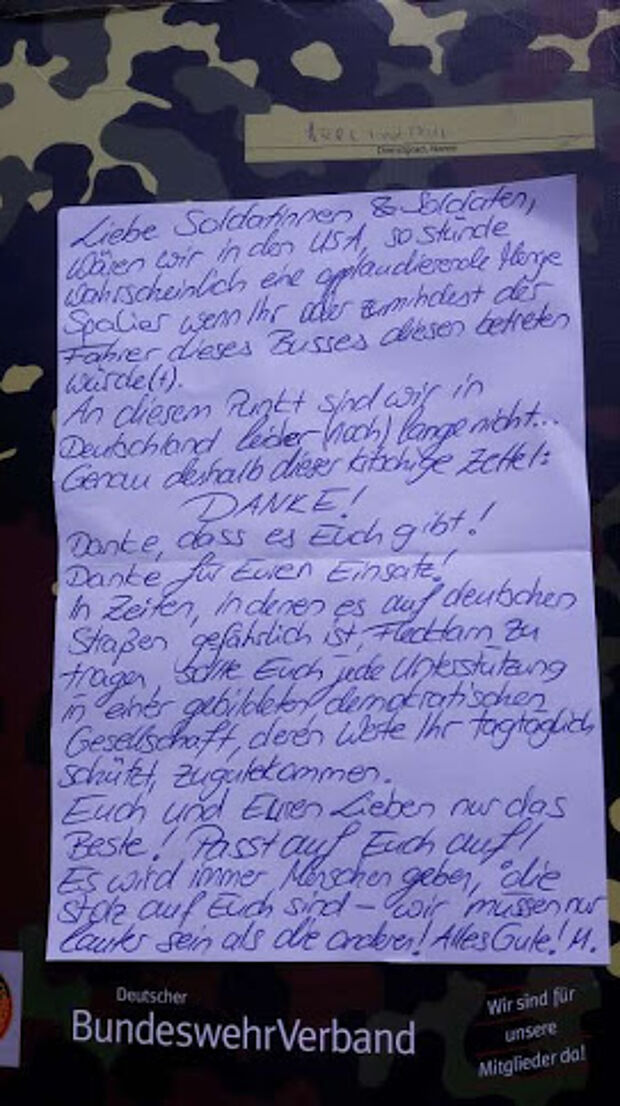 Dienstgrad, Name
Liebe Soldatinnen & Soldaten,
Wären wir in den USA, so stünde
wahrscheinlich eine applaudierende Menge
Spalier wenn Ihr oder zumindest der
Fahrer dieses Busses diesen betreten
würde(t).
An diesem Punkt sind wir in
Deutschland leider (noch) lange nicht...
Genau deshalb dieser kitschige Zettel:
DANKE!
Danke, dass es Euch gibt!
Danke für Euren Einsatz!
In Zeiten, in denen es auf deutschen
Staßen gefährlich ist, Flecktarn zu
tragen, sollte Euch jede Unterstützung
in einer gebildeten demokratischen
Gesellschaft, deren Werte Ihr tagtäglich
schützt, zugutekommen.
Euch und Euren Lieben nur das
Beste! Passt auf Euch auf!
Es wird immer Menschen geben, die
stolz auf Euch sind – wir müssen nur
lauter sein als die anderen! Alles Gute! M.
Deutscher
BundeswehrVerband
Wir sind für
unsere
Mitglieder da!